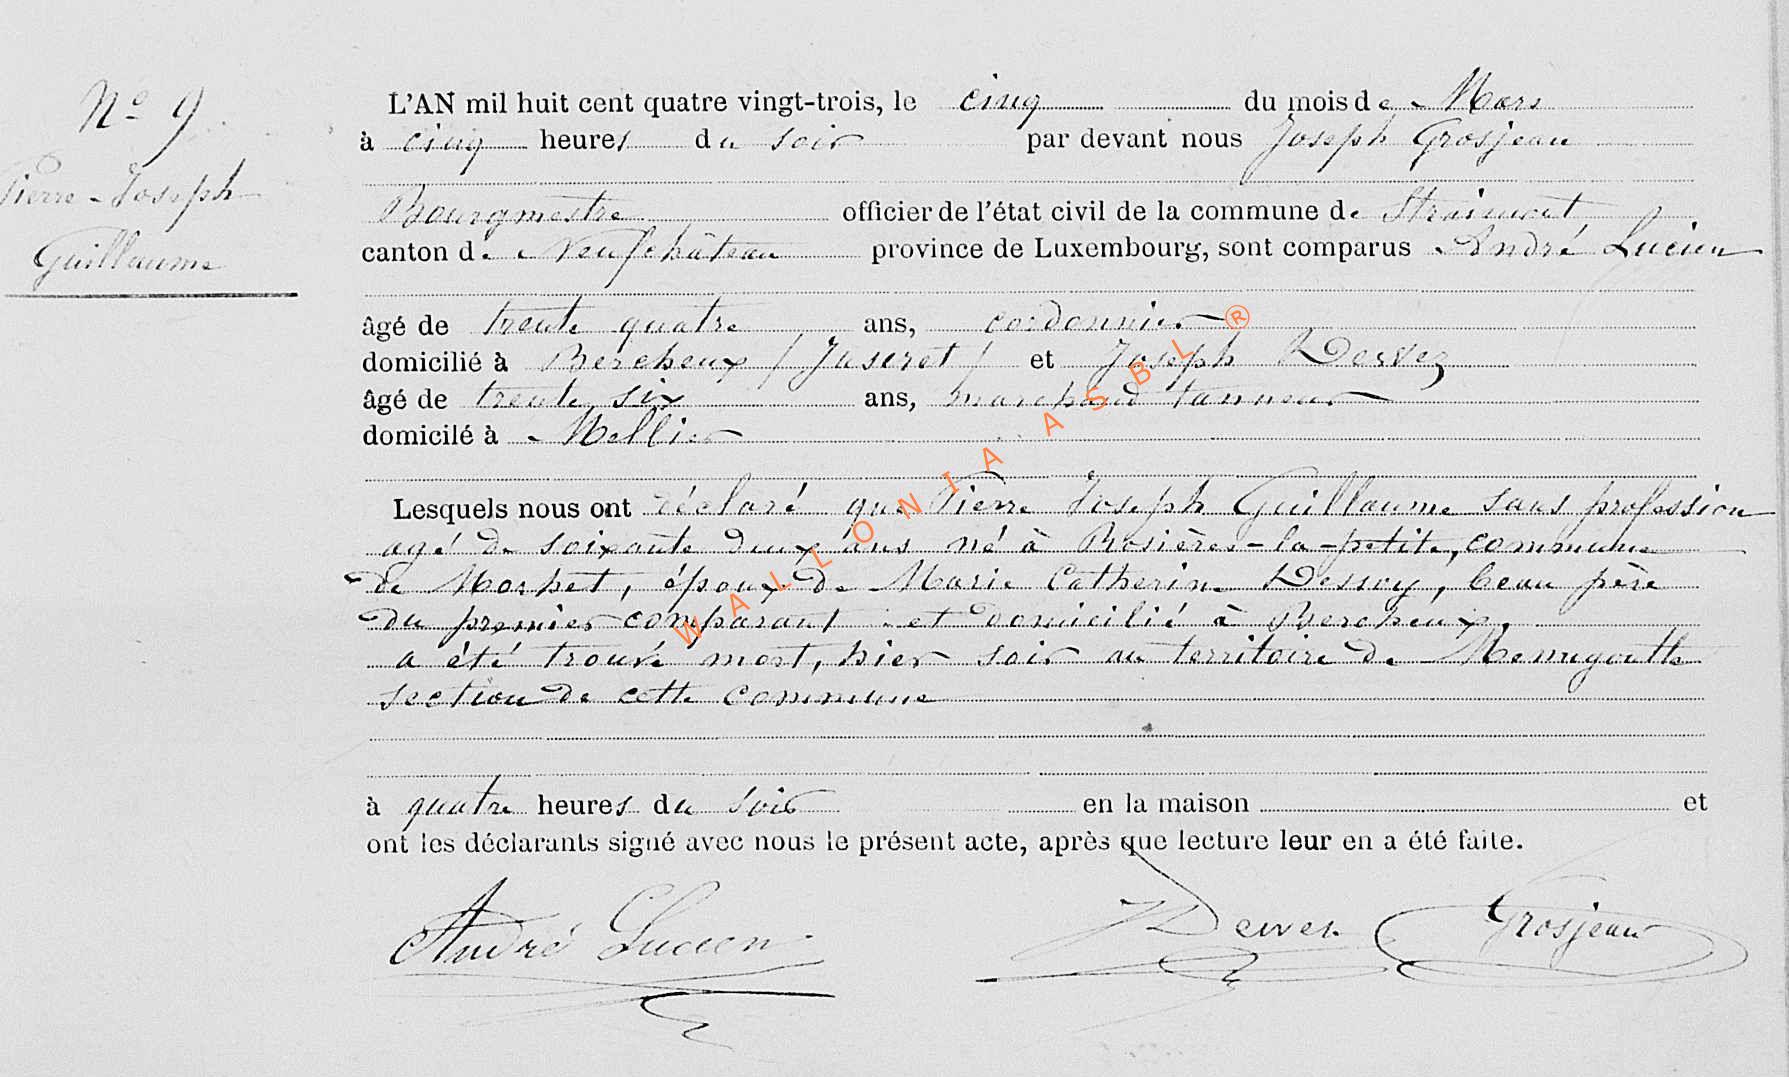 N° 9
Pierre-Joseph
Guillaume
L'AN mil huit cent quatre vingt-trois, le cinq du mois de Mars
à cinq heures du soir par devant nous Joseph Grosjean
Bourgmestre officier de l'état civil de la commune de Straimont
canton de Neufchâteau province de Luxembourg, sont comparus André Lucien
âgé de trente quatre ans, cordonnier
domicilié à Bercheux / Juseret / et Joseph
âgé de trente six ans, marchand tanneur
domicilé à Mellier
Lesquels nous ont déclaré que Pierre Joseph Guillaume sans profession
agé de soixante deux ans né à Rosières-la-petite, commune
de Morhet, époux de Marie Catherine Dessoy, beau père
du premier comparant et domicilié à Bercheux,
a été trouvé mort, hier soir au territoire de
section de cette commune
à quatre heures du soir en la maison et
ont les déclarants signé avec nous le présent acte, après que lecture leur en a été faite.
André Lucien Grosjean
WALLONIA ASBL ®